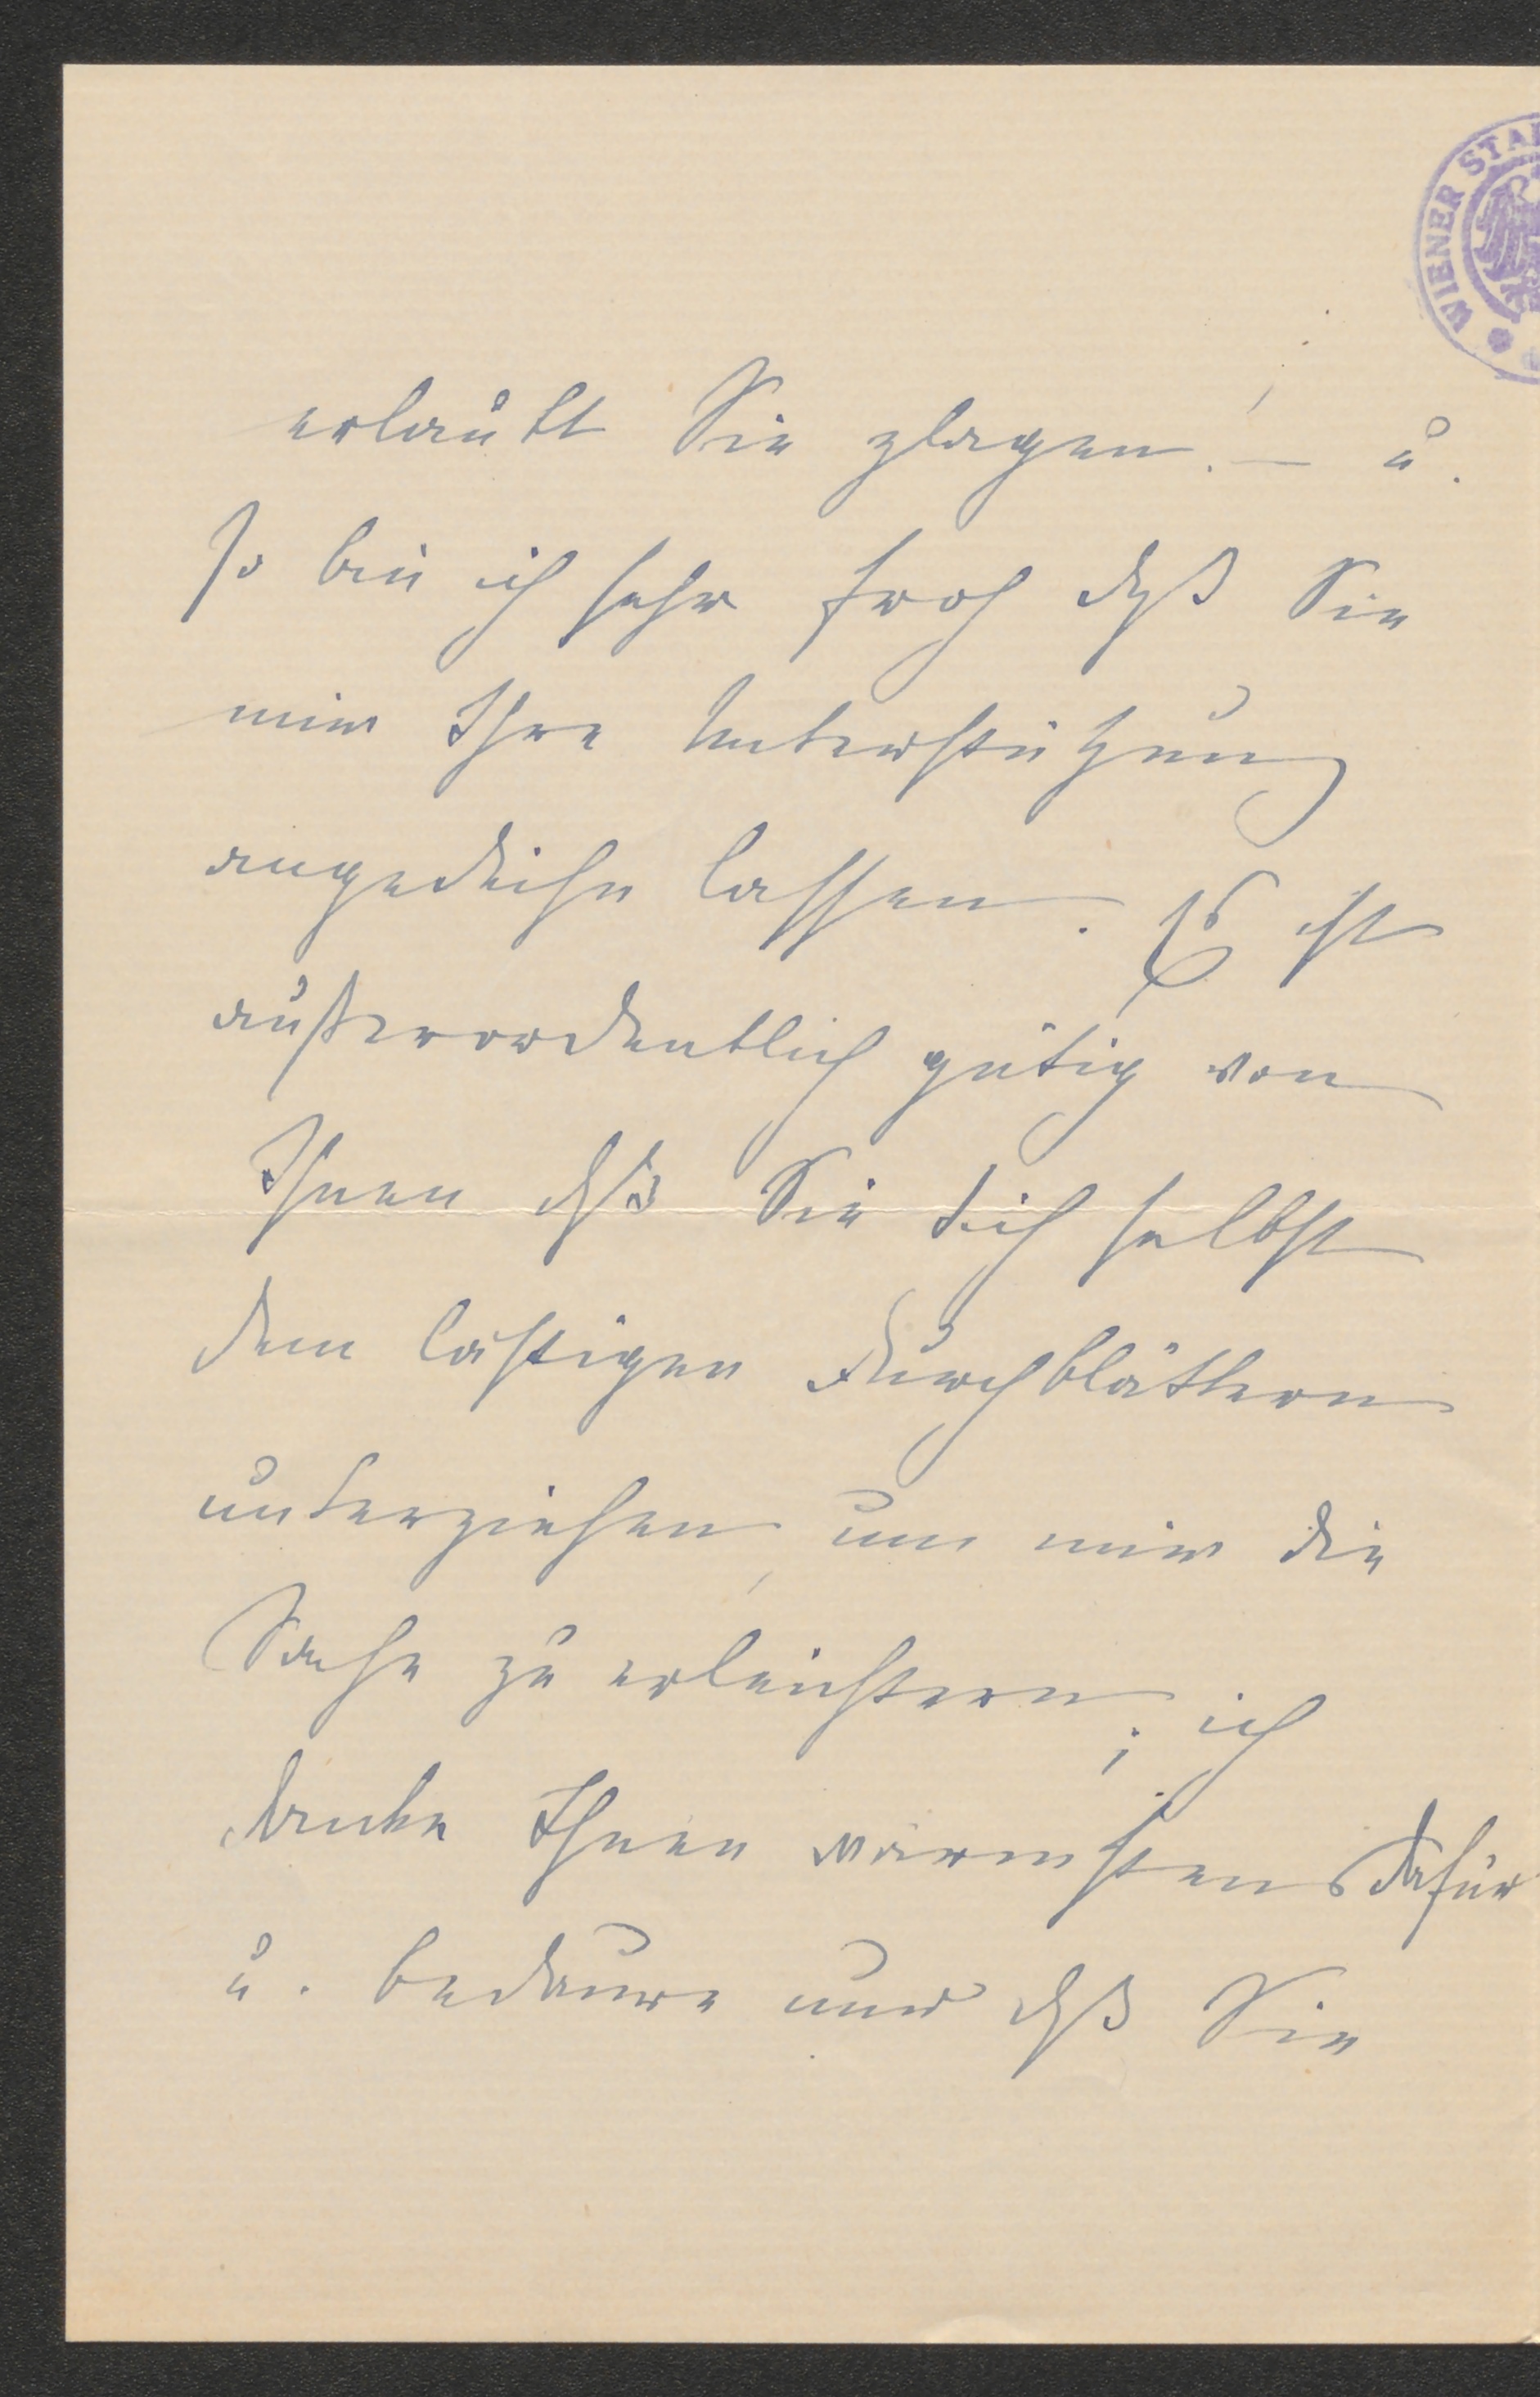 WIENER STA
erlaubt Sie plagen! – u.
so bin ich sehr froh daß Sie
mir Ihre Unterstützung
angedeihn lassen. Es ist
außerordentlich gütig von
Ihnen daß Sie sich selbst
dem lästigen Durchblättern
unterziehen, um mir die
Sache zu erleichtern; ich
danke Ihnen wärmstens dafür
u. bedaure nur daß Sie